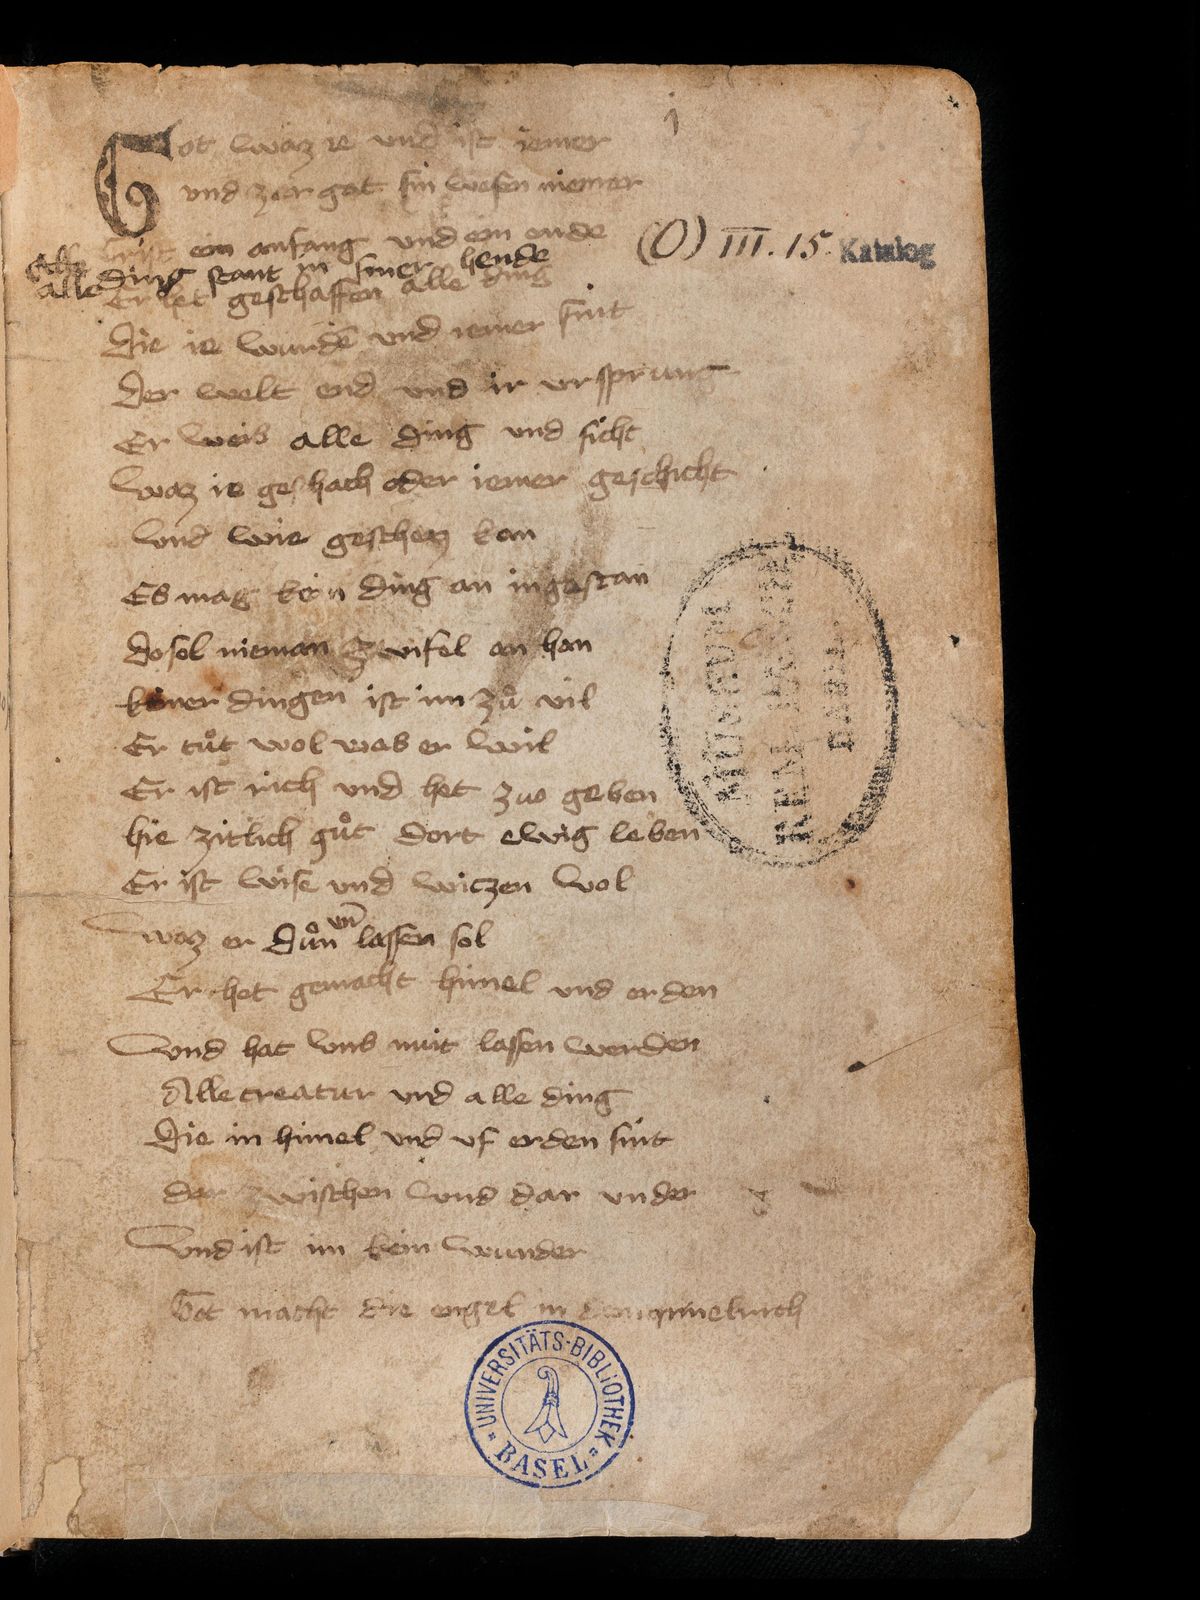 j
Got waz ie und ist iemer
und zergat sin wesen niemer
Er ist ein anfang und ein ende
alle ding stant in siner hende
Er het geschaffen alle ding
Die ie wurdē und iemer sint
Der welt end und ir ursprung
Er weis alle ding und sicht
Waz ie geschach oder iemer geschicht
Vnd wie geschehen kan
Es mag kein ding an in gestan
do sol nieman zwifel an han
keiner dingen ist im zuͦ vil
Er tuͦt wol was er wil
Er ist rich und het zuo geben
hie zitlich guͦt dort ewig leben
Er ist wise und witzen vol
Waz er duͦn vn̄ lassen sol
Er het gemacht himel und erden
Vnd hat vns mit lassen werden
Alle creatur und alle ding
Die in himel und uf erden sint
dar zwischen vnd dar under
Vnd ist im kein wunder
Got macht die engel in
(O) III. 15. Katalog
UNIVERSITÄTS-BIBLIOTHEK
BASEL